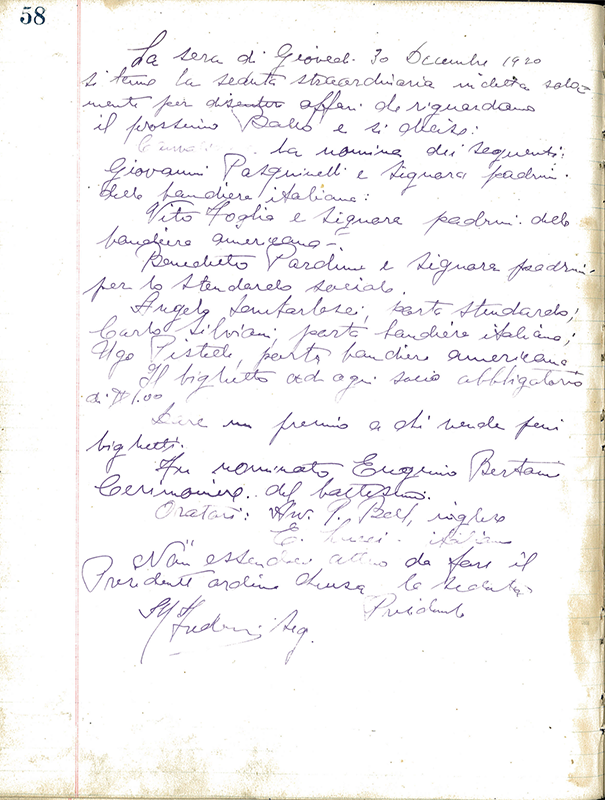 58
La sera di Giovedi 30 Decembre 1920
si tenne la seduta straordinaria indetta sola-
mente per discutere affari che riguardano
il prossimo Ballo e si decise:
la nomina dei seguenti:
Giovanni Pasquinelli e Signora padrini
della bandiera italiana:
Vito Foglia e Signora padrini della
bandiera americana-
Benedetto Pardini e Signora padrini-
per lo stendardo sociale.
Angelo porta stendardo;
Carlo Silviani, porta bandiera italiana;
Ugo porta bandiera americana
Il biglietto ad ogni socio abbligatorio
di $1.00
Dare un premio a chi vende più
biglietti.
Fu nominato Eugenio Bertani
Cerimoniere del battesimo.
Oratori: Avv. P. inglese
E. italiano
Non essendoci altro da fare il
Presidente ordina chiusa la seduta
Presidente
Seg.